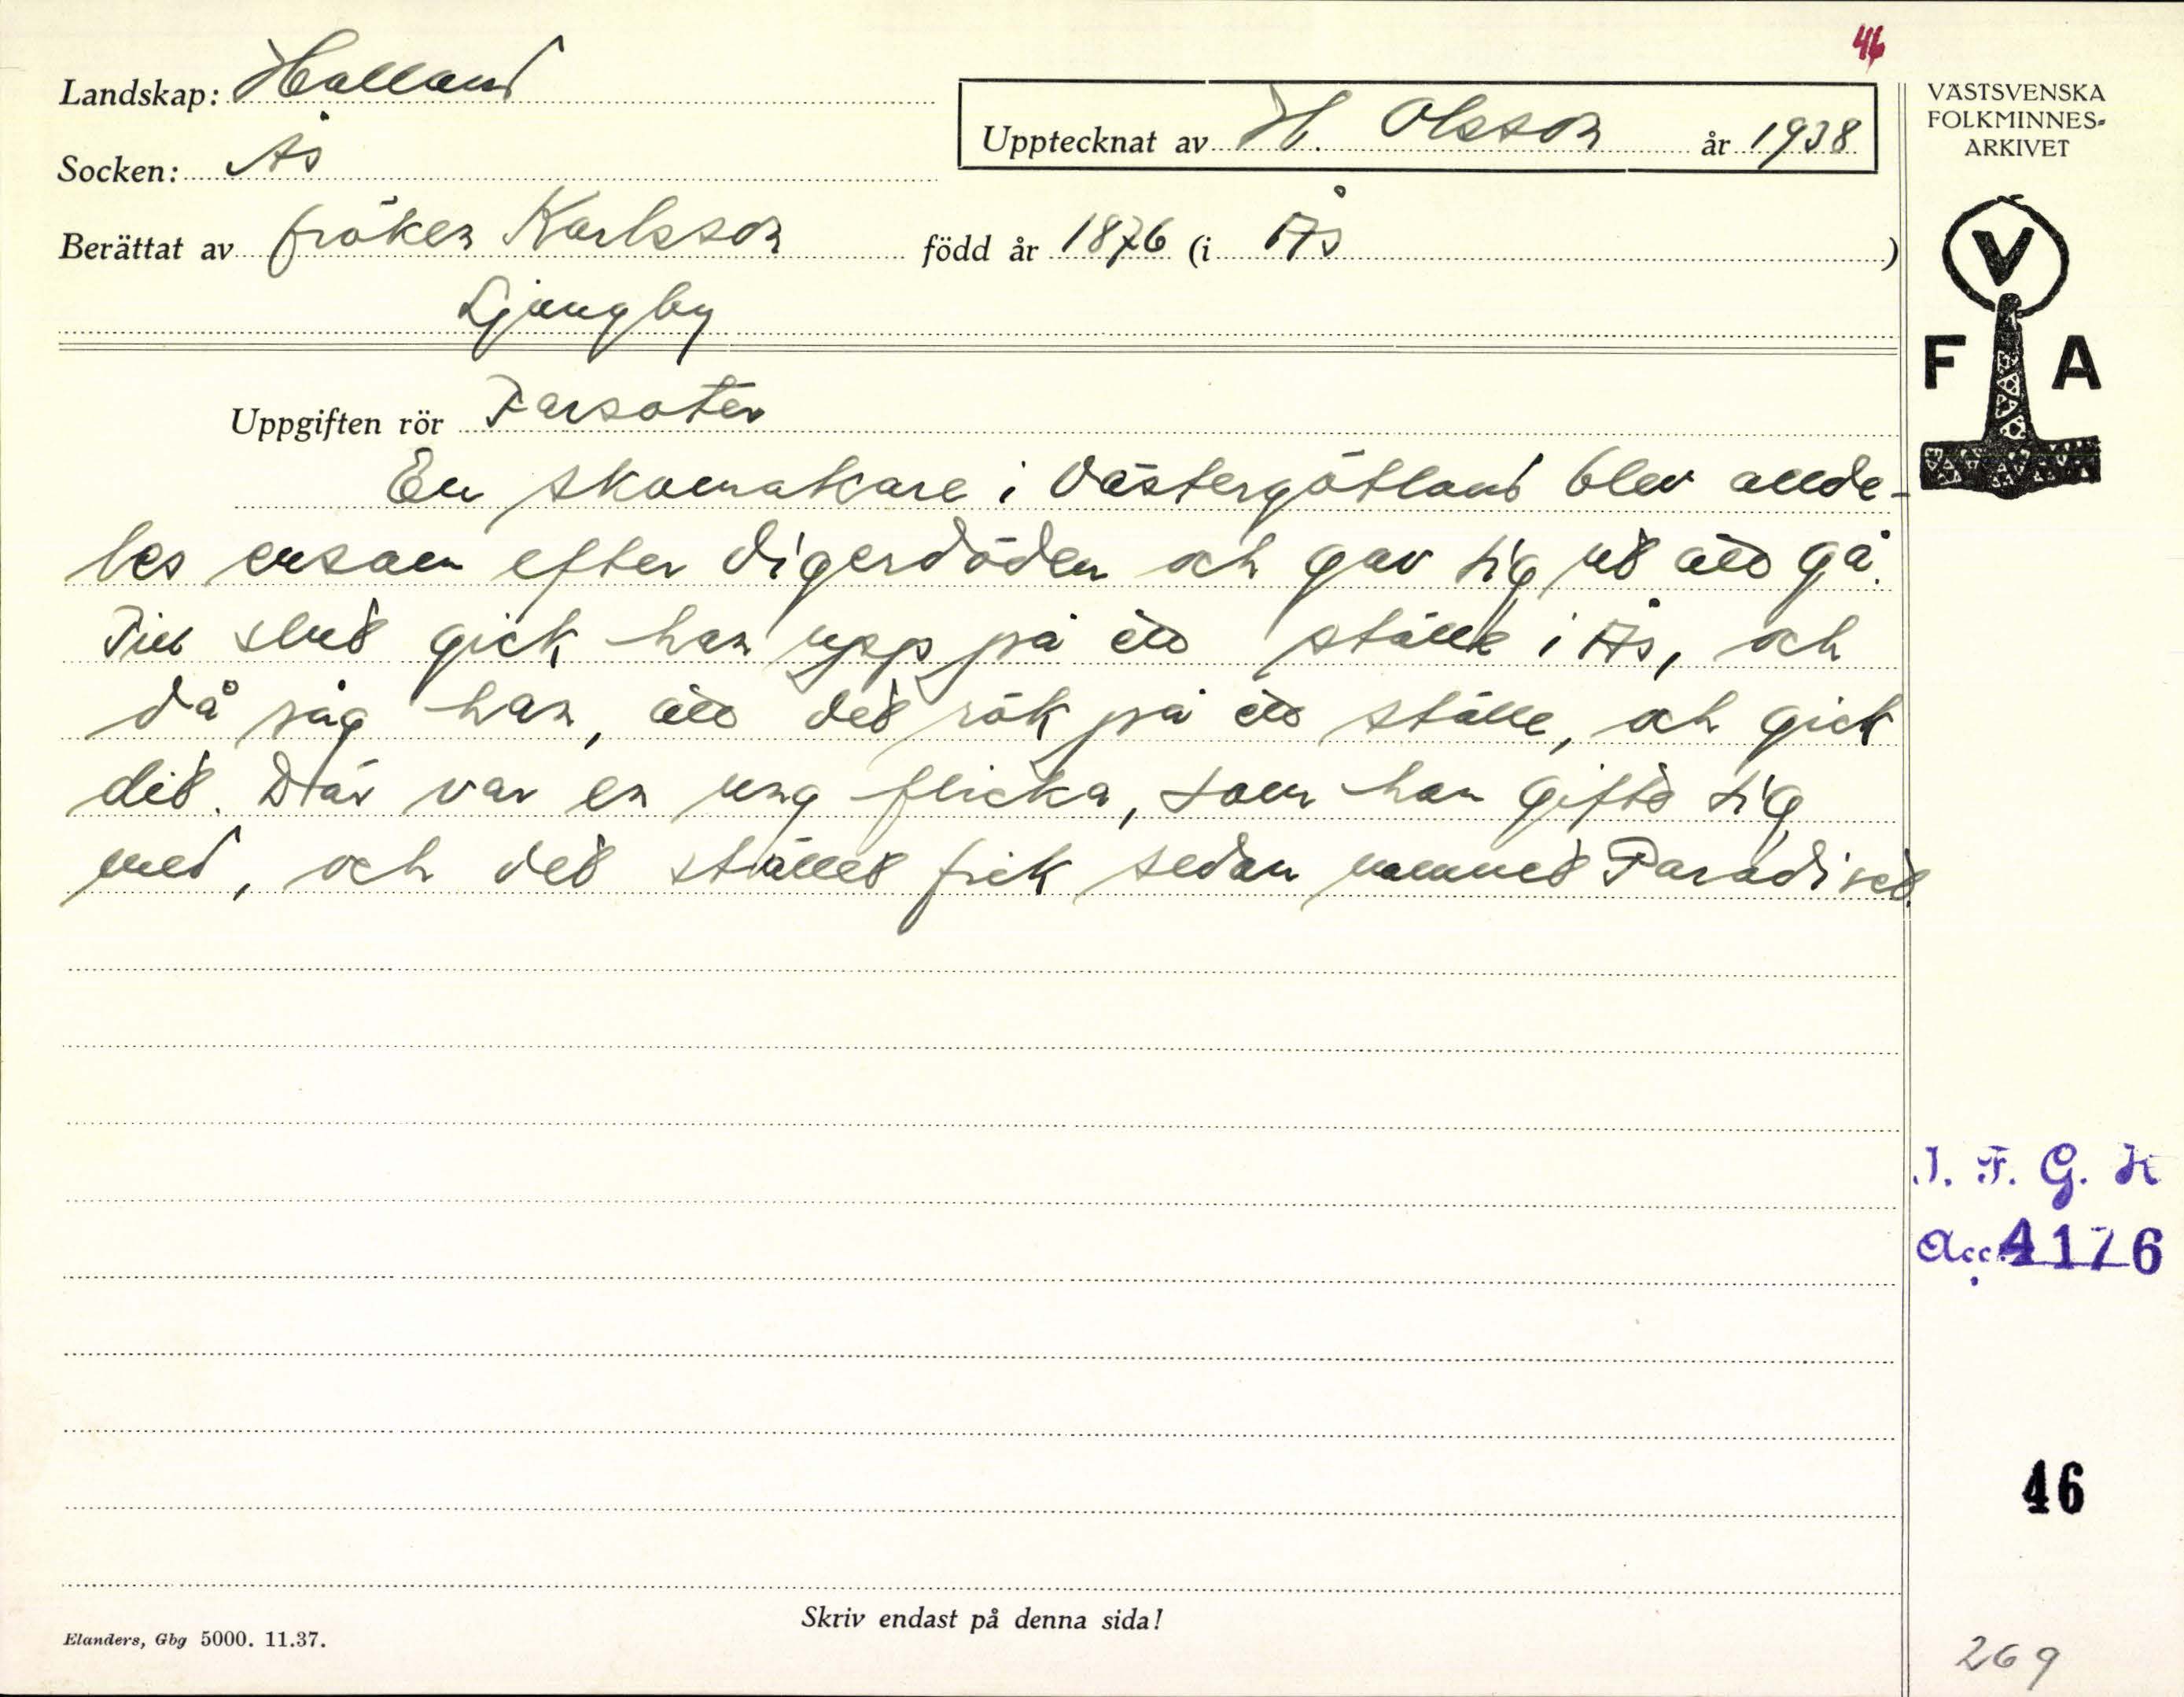 46
Landskap: Halland
Upptecknat av H. Olsson år 1938
Socken: Ås
Berättat av fröken Karlsson född år 1876 (i Ås )
Ljungby
Uppgiften rör Farsoter
En skomakare i Västergötland blev allde-
les ensam efter digerdöden och gav sig ut att gå.
Till slut gick han upp på ett ställe i Ås, och
då såg han, att det rök på ett ställe, och gick
dit. Där var en ung flicka, som han gifte sig
med, och det stället fick sedan namnet Paradiset.
Skriv endast på denna sida!
Elanders, Gbg 5000. 11.37.
VÄSTSVENSKA
FOLKMINNES-
ARKIVET
V
F A
I. F. G. H
Acc. 4176
46
269